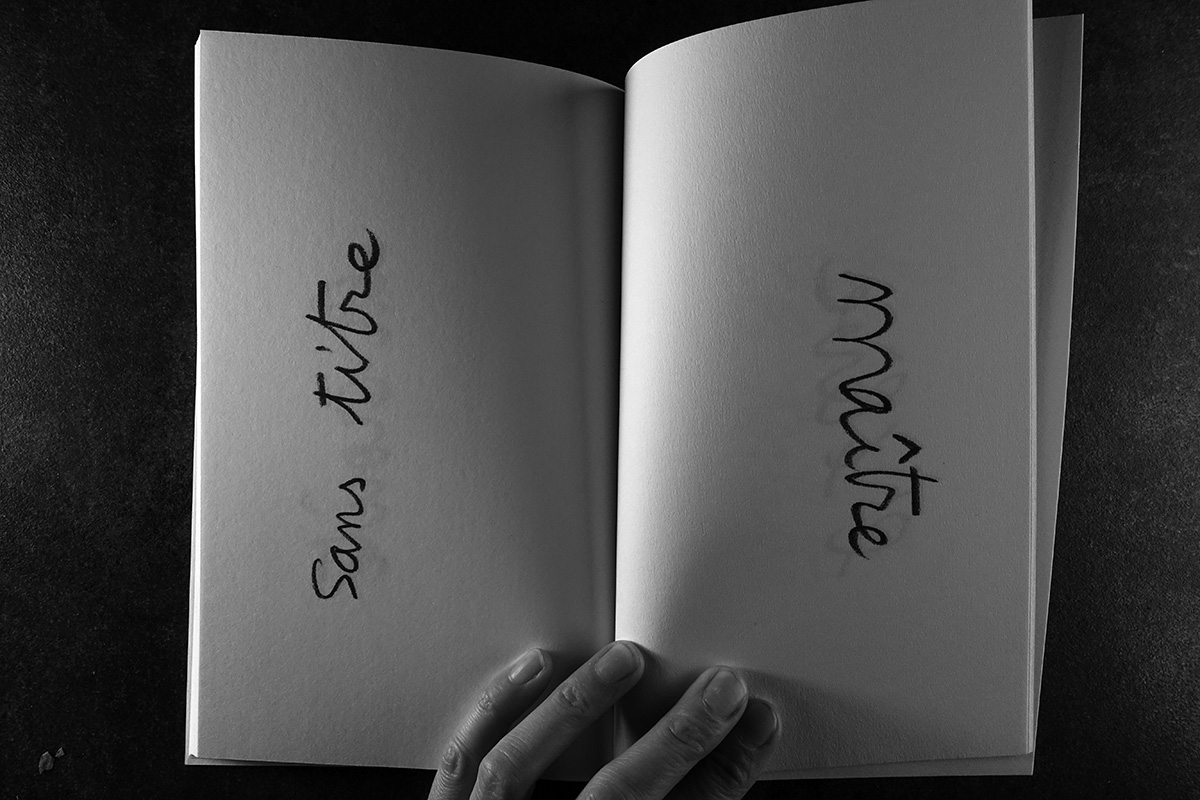 Sans titre
maître